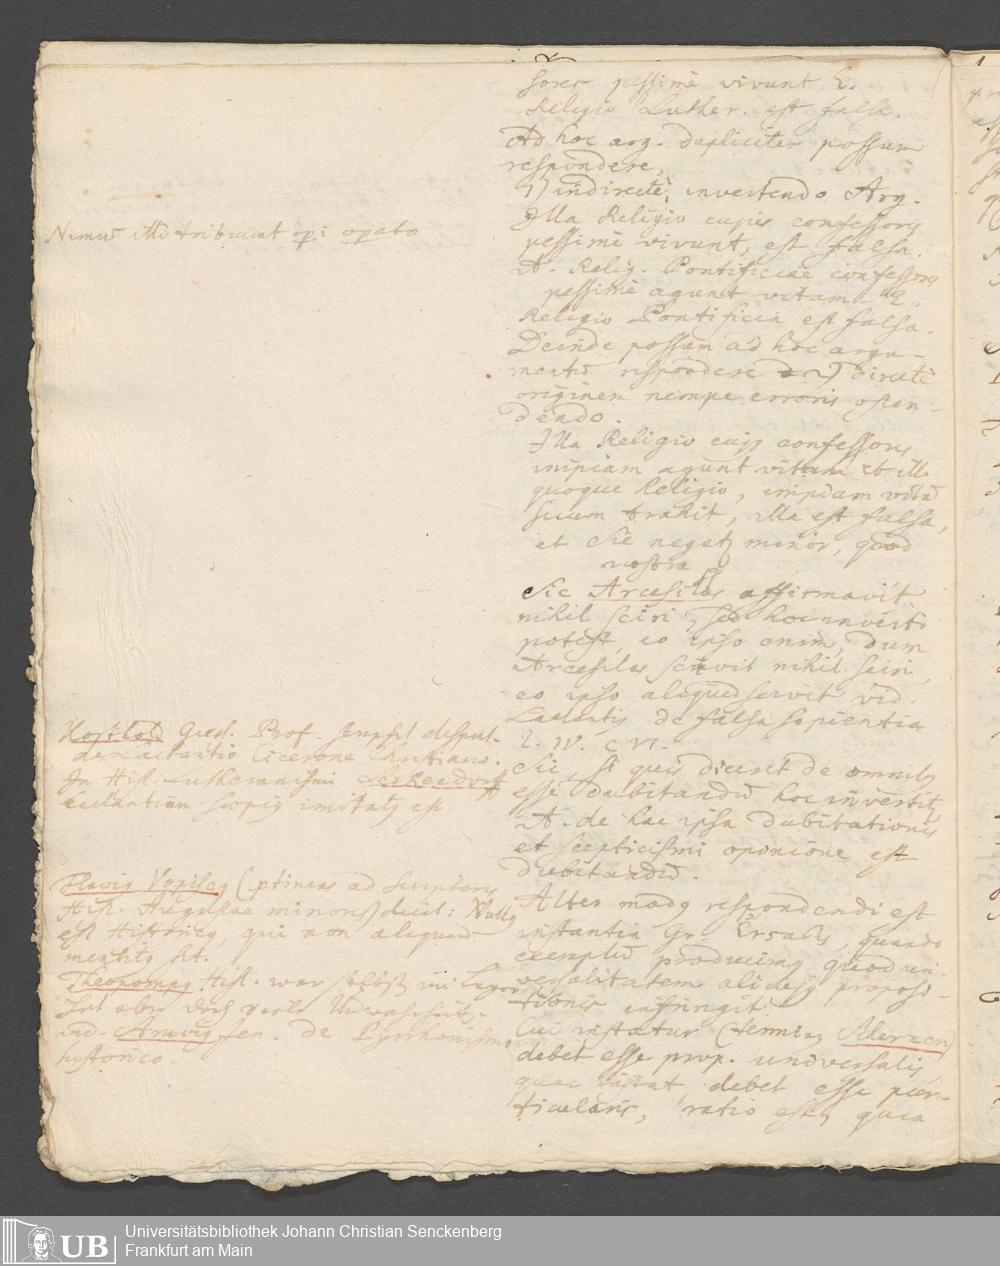 sores pessimè vivunt E.
Religio Luther. est falsa.
Ad hoc arg. dupliciter possum
respondere,
1) indirectè, invertendo Arg.
Illa Religio cujus confessores
pessimè vivunt, est falsa.
A. Relig. Pontificiae confessores
pessimè agunt vitam. E.
Religio Pontificia est falsa.
Deinde possum ad hoc argu-
mentū respondere 2) directè
originem nempe erroris osten-
dendo.
Illa Religio cujus confessores
impiam agunt vitam et ille
quoque Religio, impiam vitā
secum trahit, illa est falsa,
et sic negatur minor, quod
nostra
Sic Arcesilas affirmavit
nihil sciri, sed hoc inverti
potest, eo ipso enim, dum
Arcesilas scivit nihil sciri,
eo ipso aliquid scivit vid.
Lactantius de falsa sapientia
l. IV. c VI.
Sic, si quis diceret de omnibus
esse dubitandū hoc invertitur
A. de hac ipsa dubitationis
et scepticismi opinione est
dubitandū.
Alter modus respondendi est
instantia Gr. , quando
exemplū producimus quod uni-
versalitatem alicujus proposi-
tionis infringit.
Cui instatur (terminus )
debet esse prop. universalis
quae instat debet esse par-
ticularis, ratio est, quia
Nimiū illi tribuunt operi operato
Kortholt Prof. disput.
de Lactantio Cicerone Christiano.
In Hist. Lutheranismi Seckendorff
Lactantium saepius imitatus est
Flavius Vopiscus (ptinens ad scriptores
Hist. Augustae minores) dicit: Nullus
est Historicus, qui non aliquid
mentitus sit.
Theopompus Hist. war selbst ein Lügner
hat aber doch viele
vid. de Pyrrhonismo
historico.
Universitätsbibliothek Johann Christian Senckenberg
Frankfurt am Main
UB